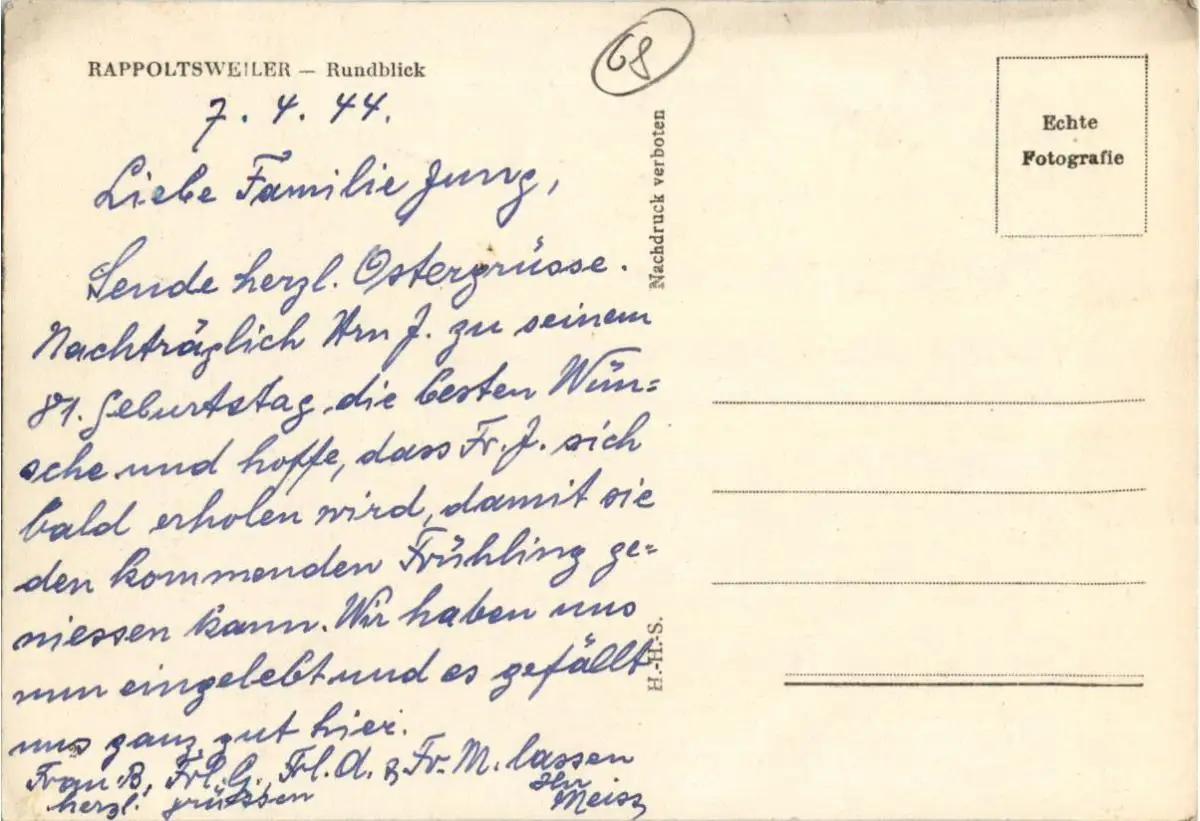 RAPPOLTSWEILER — Rundblick
68
7. 4. 44.
Liebe Familie Jung,
Sende herzl. Ostergrüsse.
Nachträglich Hrn J. zu seinem
81. Geburtstag die besten Wün=
sche und hoffe, dass Fr. J. sich
bald erholen wird, damit sie
den kommenden Frühling ge=
niessen kann. Wir haben uns
nun eingelebt und es gefällt
uns ganz gut hier.
Frau B, Frl. G., Frl. A. & Fr. M. lassen
herzl. grüssen
Nachdruck verboten
H.-H.-S.
Echte
Fotografie